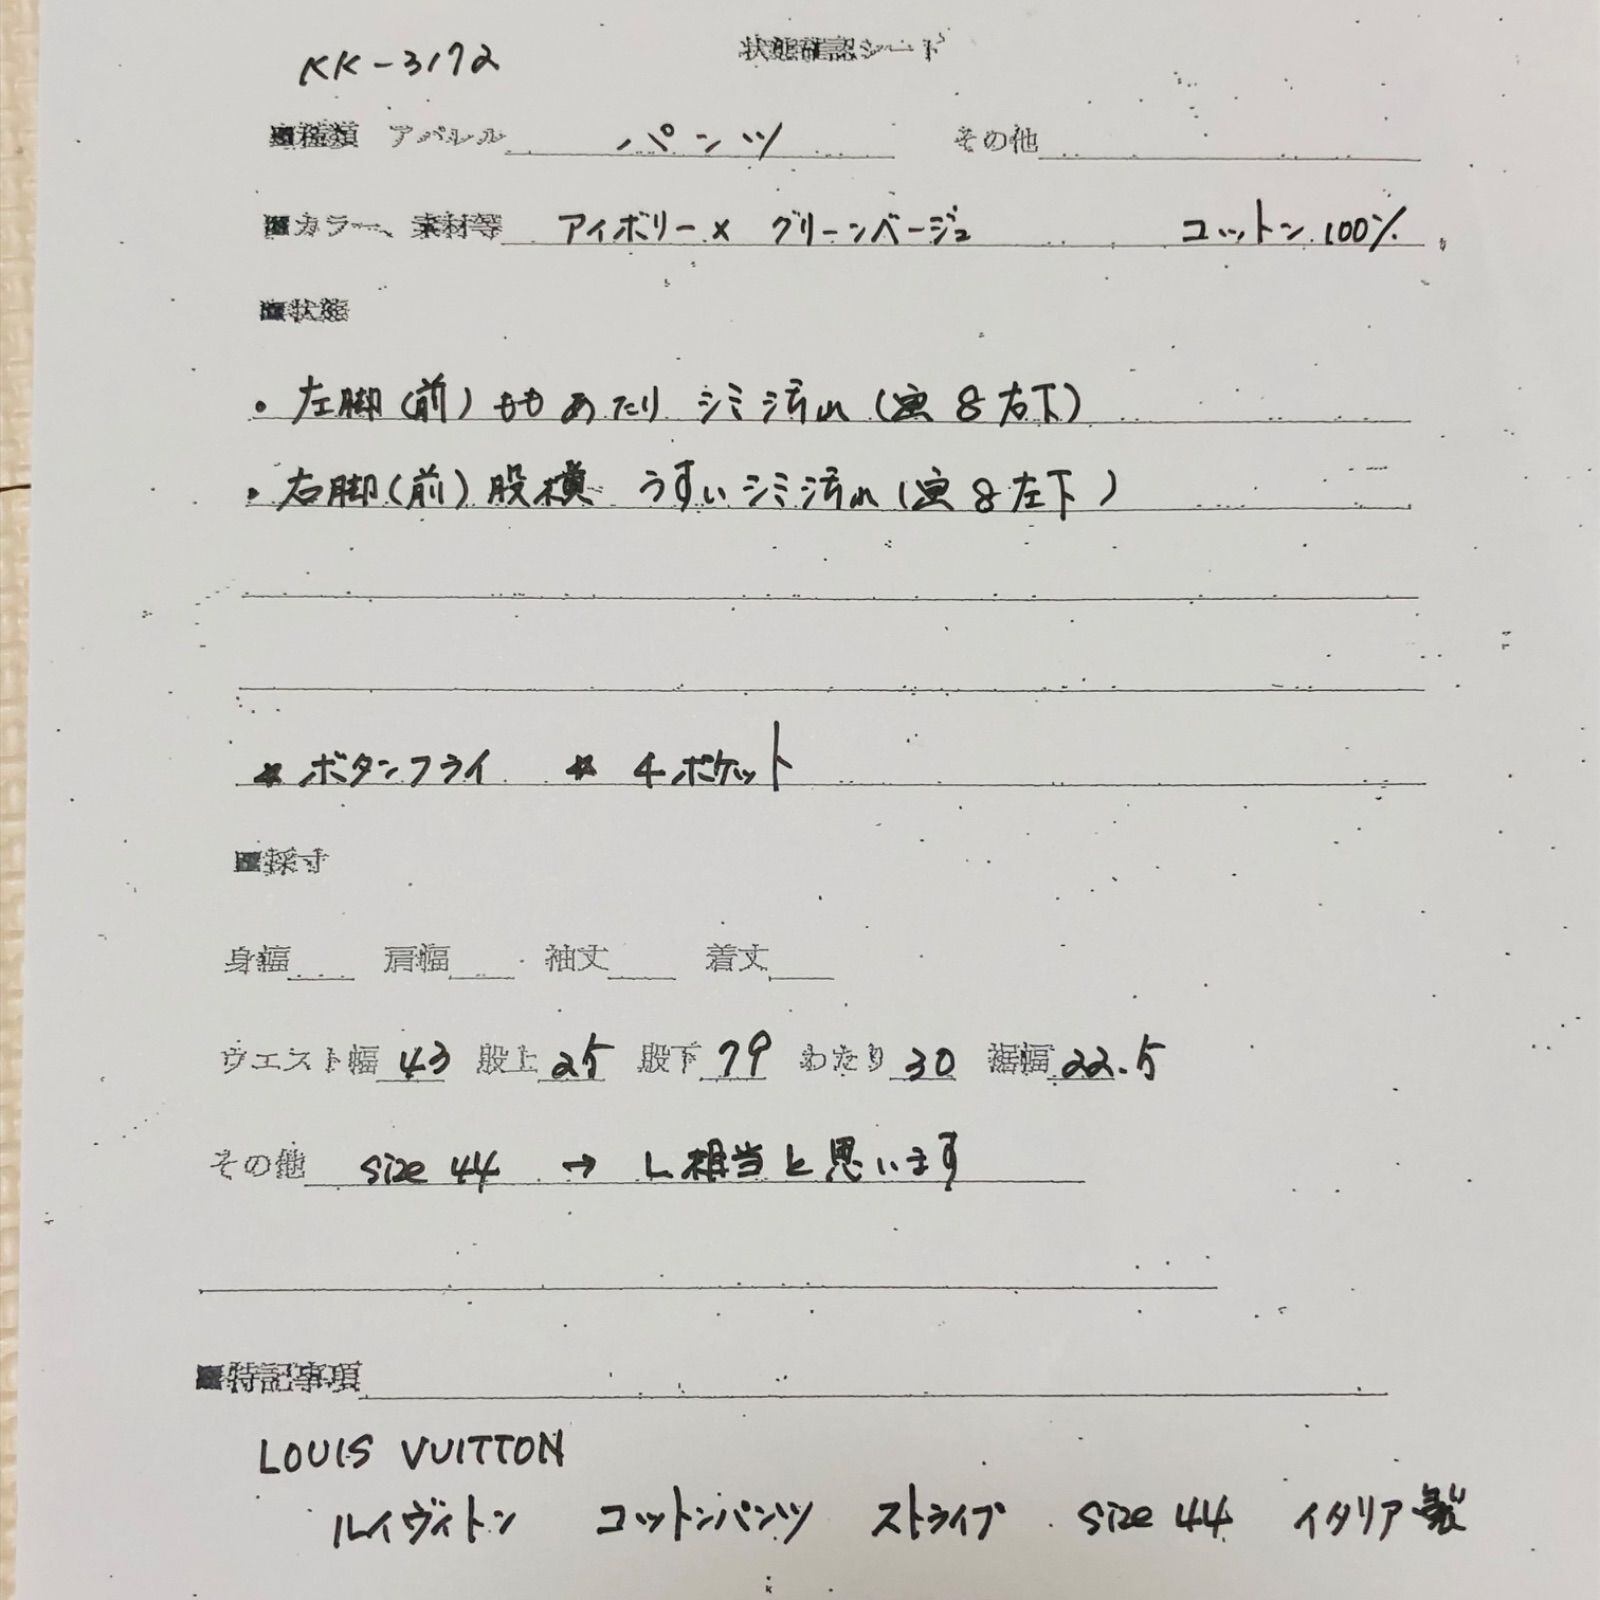 状態確認シート
KK-3172
■種類 アパレル パンツ その他
■カラー、素材等 アイボリー× グリーンベージュ コットン 100%
■状態
・左脚(前)ももあたり シミ汚れ(画8右下)
・右脚(前)股横 うすいシミ汚れ(画8左下)
* ボタンフライ * 4ポケット
■採寸
身幅 肩幅 袖丈 着丈
ウエスト幅 43 股上 25 股下 79 わたり 30 裾幅 22.5
その他 size 44 → L相当と思います
■特記事項
LOUIS VUITTON
ルイヴィトン コットンパンツ ストライプ size 44 イタリア製